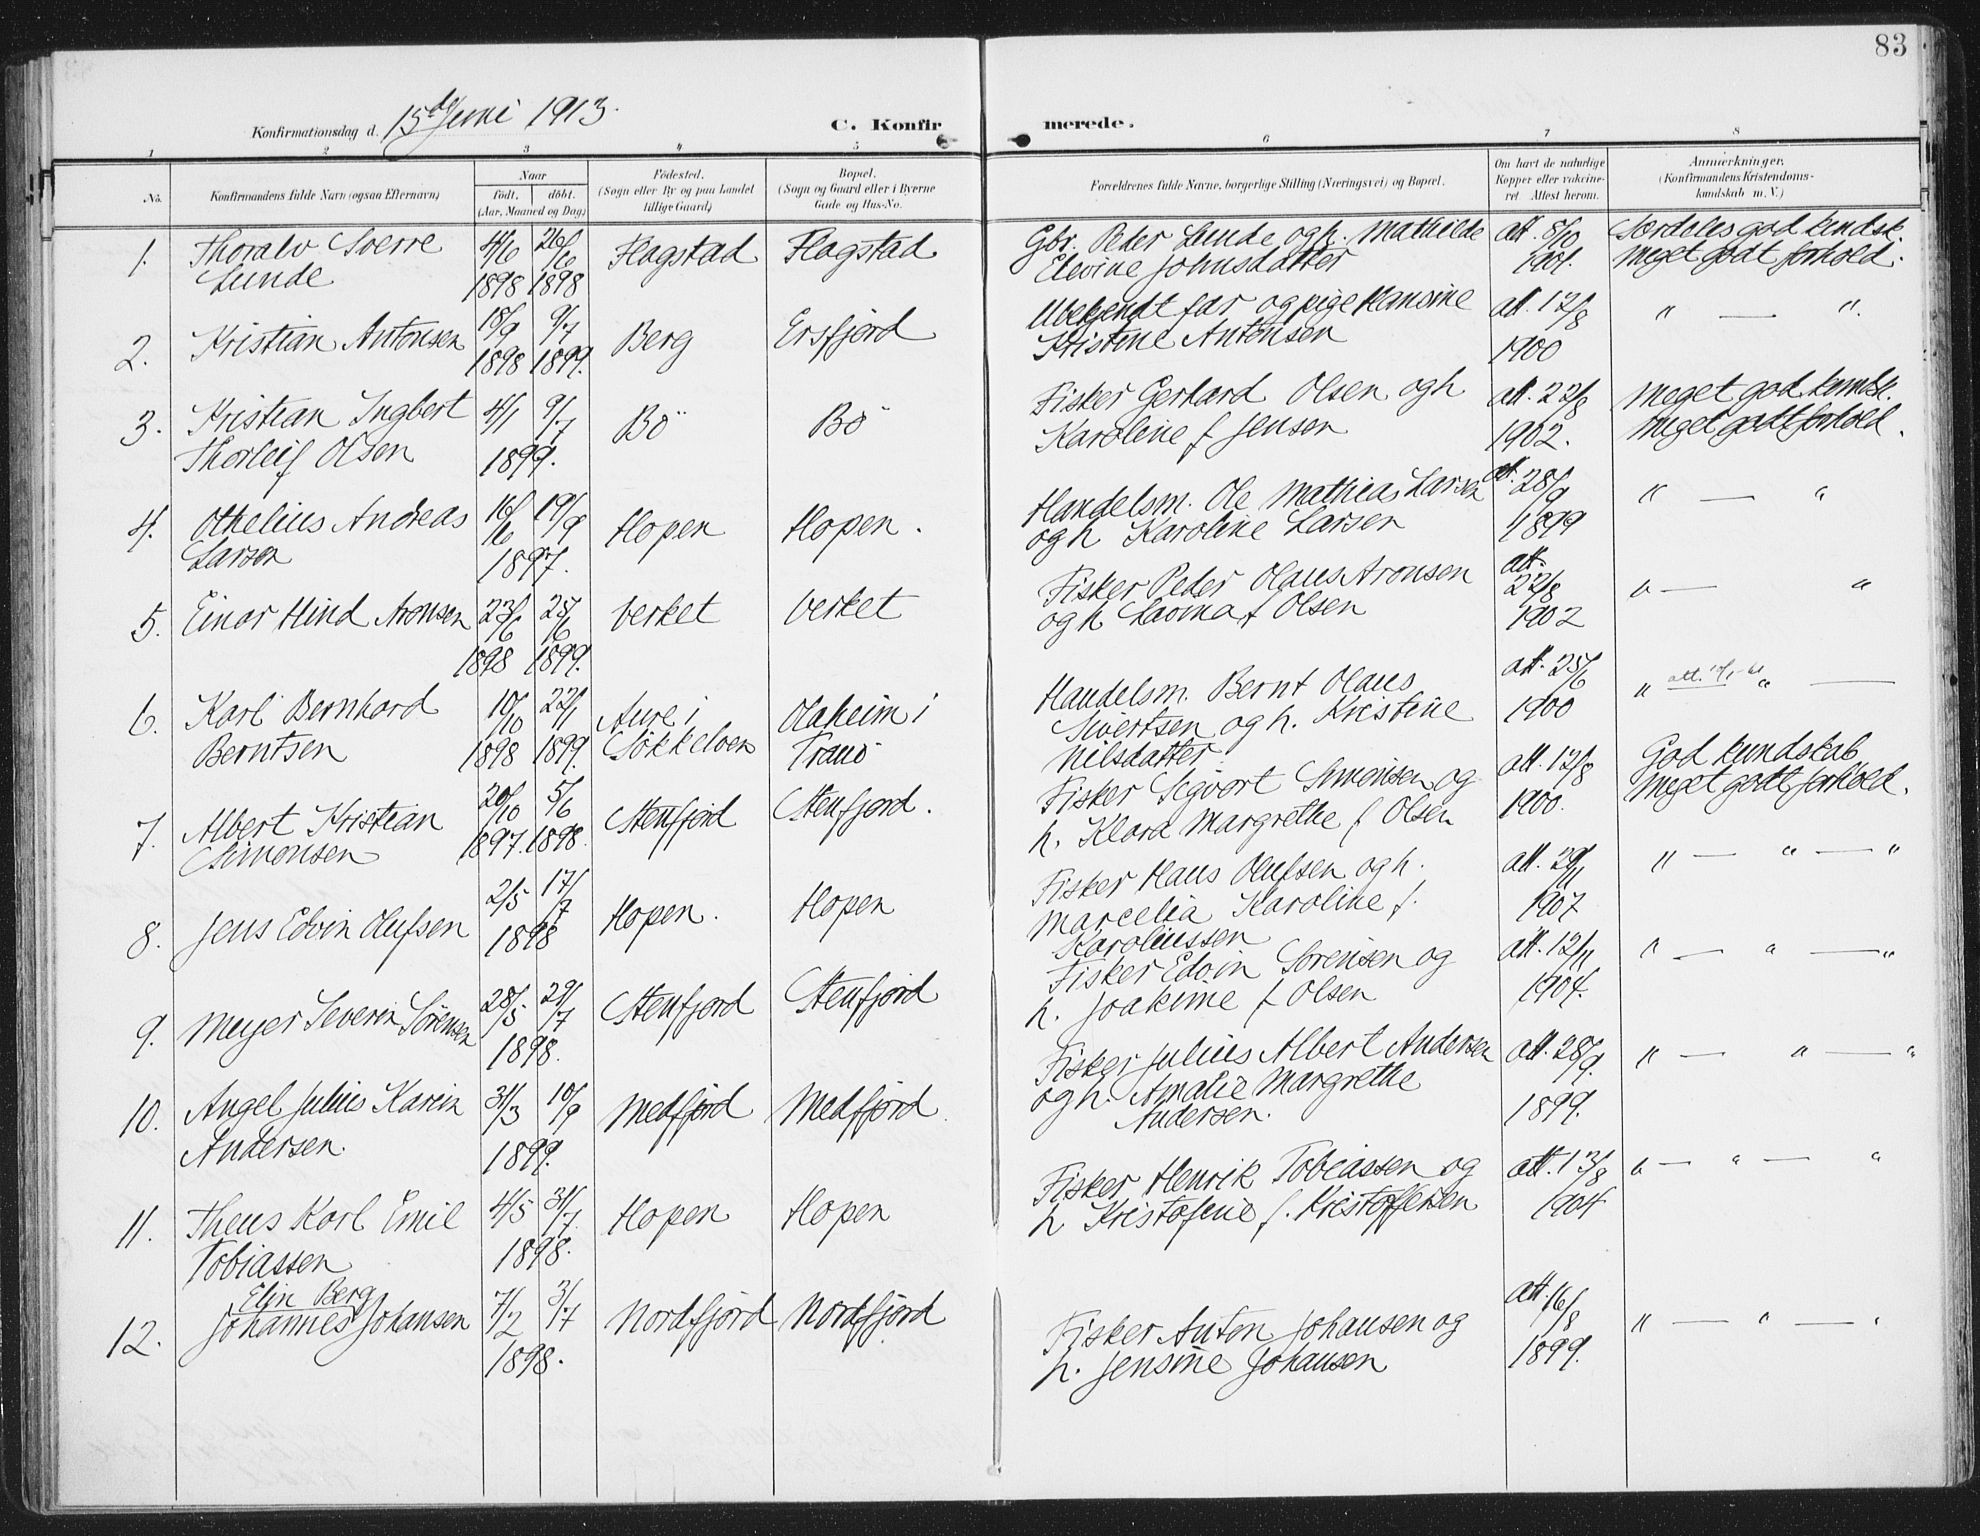 83
Konfirmationsdag d. 15de Juni 1913. C. Konfir merede.
1 2 3 4 5 6 7 8
No.
Konfirmandens fulde Navn (ogsaa Efternavn)
Naar
födt, döbt.
(Aar, Maaned og Dag)
Födested.
(Sogn eller By og paa Landet
tillige Gaard)
Bopæl.
(Sogn og Gaard eller i Byerne
Gade og Hus-No.
Forældrenes fulde Navne, borgerlige Stilling (Næringsvei) og Bopæl.
Om havt de naturlige
Kopper eller vakcine-
ret. Attest herom.
Anmærkninger.
(Konfirmandens Kristendoms-
kundskab m. V.)
1. Thoralv Sverre 4/6 26/6 Flagstad Flagstad Gbr. Peder Lunde og h. Mathilde att. 8/10 Særdeles god kundsk.
Lunde 1898 1898 Elevine Johnsdatter 1901. Meget godt forhold.
2. Kristian Antonsen 18/9 9/7 Berg Ersfjord Ubekjendt far og pige Hansine att. 17/8 " — ".
1898 1899. Kristine Antonsen 1900
3. Kristian Ingbert 4/1 9/7 Bö Bö Fisker Gerhard Olsen og h att. 22/8 Meget god kundsk.
Thorleif Olsen 1899. Karoline f Jensen 1902. Meget godt forhold.
4. Othelius Andreas 16/6 19/9 Hopen Hopen. Handelsm. Ole Mathias Larsen att. 28/9 " — "
Larsen 1897. og h Karoline Larsen 1899
5. Einar Hind Aronsen 23/6 25/6 Verket Verket Fisker Peder Olaus Aronsen att. 22/8 " — "
1898 1899. og h Lavina f Olsen 1902
6. Karl Bernhard 10/10 22/1 Aure i Olaheim i Handelsm. Bernt Olaus att. 25/6 " — " —
Berntsen 1898 1899. Sökkelven Tranö Sivertsen og h. Kristine 1900
Nilsdatter.
7. Albert Kristian 20/10 5/6 Stenfjord Stenfjord. Fisker Sigvart Simonsen og att. 17/8 God kundskab
Simonsen 1897. 1898. h. Klara Margrethe f Olsen 1900. Meget godt forhold.
8. Jens Edvin Olufsen 2/5 17/7 Hopen. Hopen Fisker Hans Olufsen og h. att. 29/11 " — " — "
1898 Marcelia Karoline f. 1907
Karoliussen
9. Meyer Severin Sörensen 28/5 29/7 Stenfjord Stenfjord Fisker Edvin Sörensen og att. 12/11 " — " — "
1898. h. Joakime f Olsen 1904.
10. Angel Julius Karin 31/3 10/9 Medfjord Medfjord Fisker Julius Albert Andersen att. 28/9. " — " — "
Andersen. 1899. og h. Amalie Margrethe 1899.
Andersen.
11. Theus Karl Emil 4/5 31/7. Hopen Hopen Fisker Henrik Tobiassen og att. 13/8 " — " — "
Tobiassen 1898. h Kristofine f. Kristoffersen 1904
Elin Berg
12. Johannes Johansen 7/2 3/7 Nordfjord Nordfjord Fisker Anton Johansen og att. 16/8 " — " — "
1898. h. Jensine Johansen 1899.